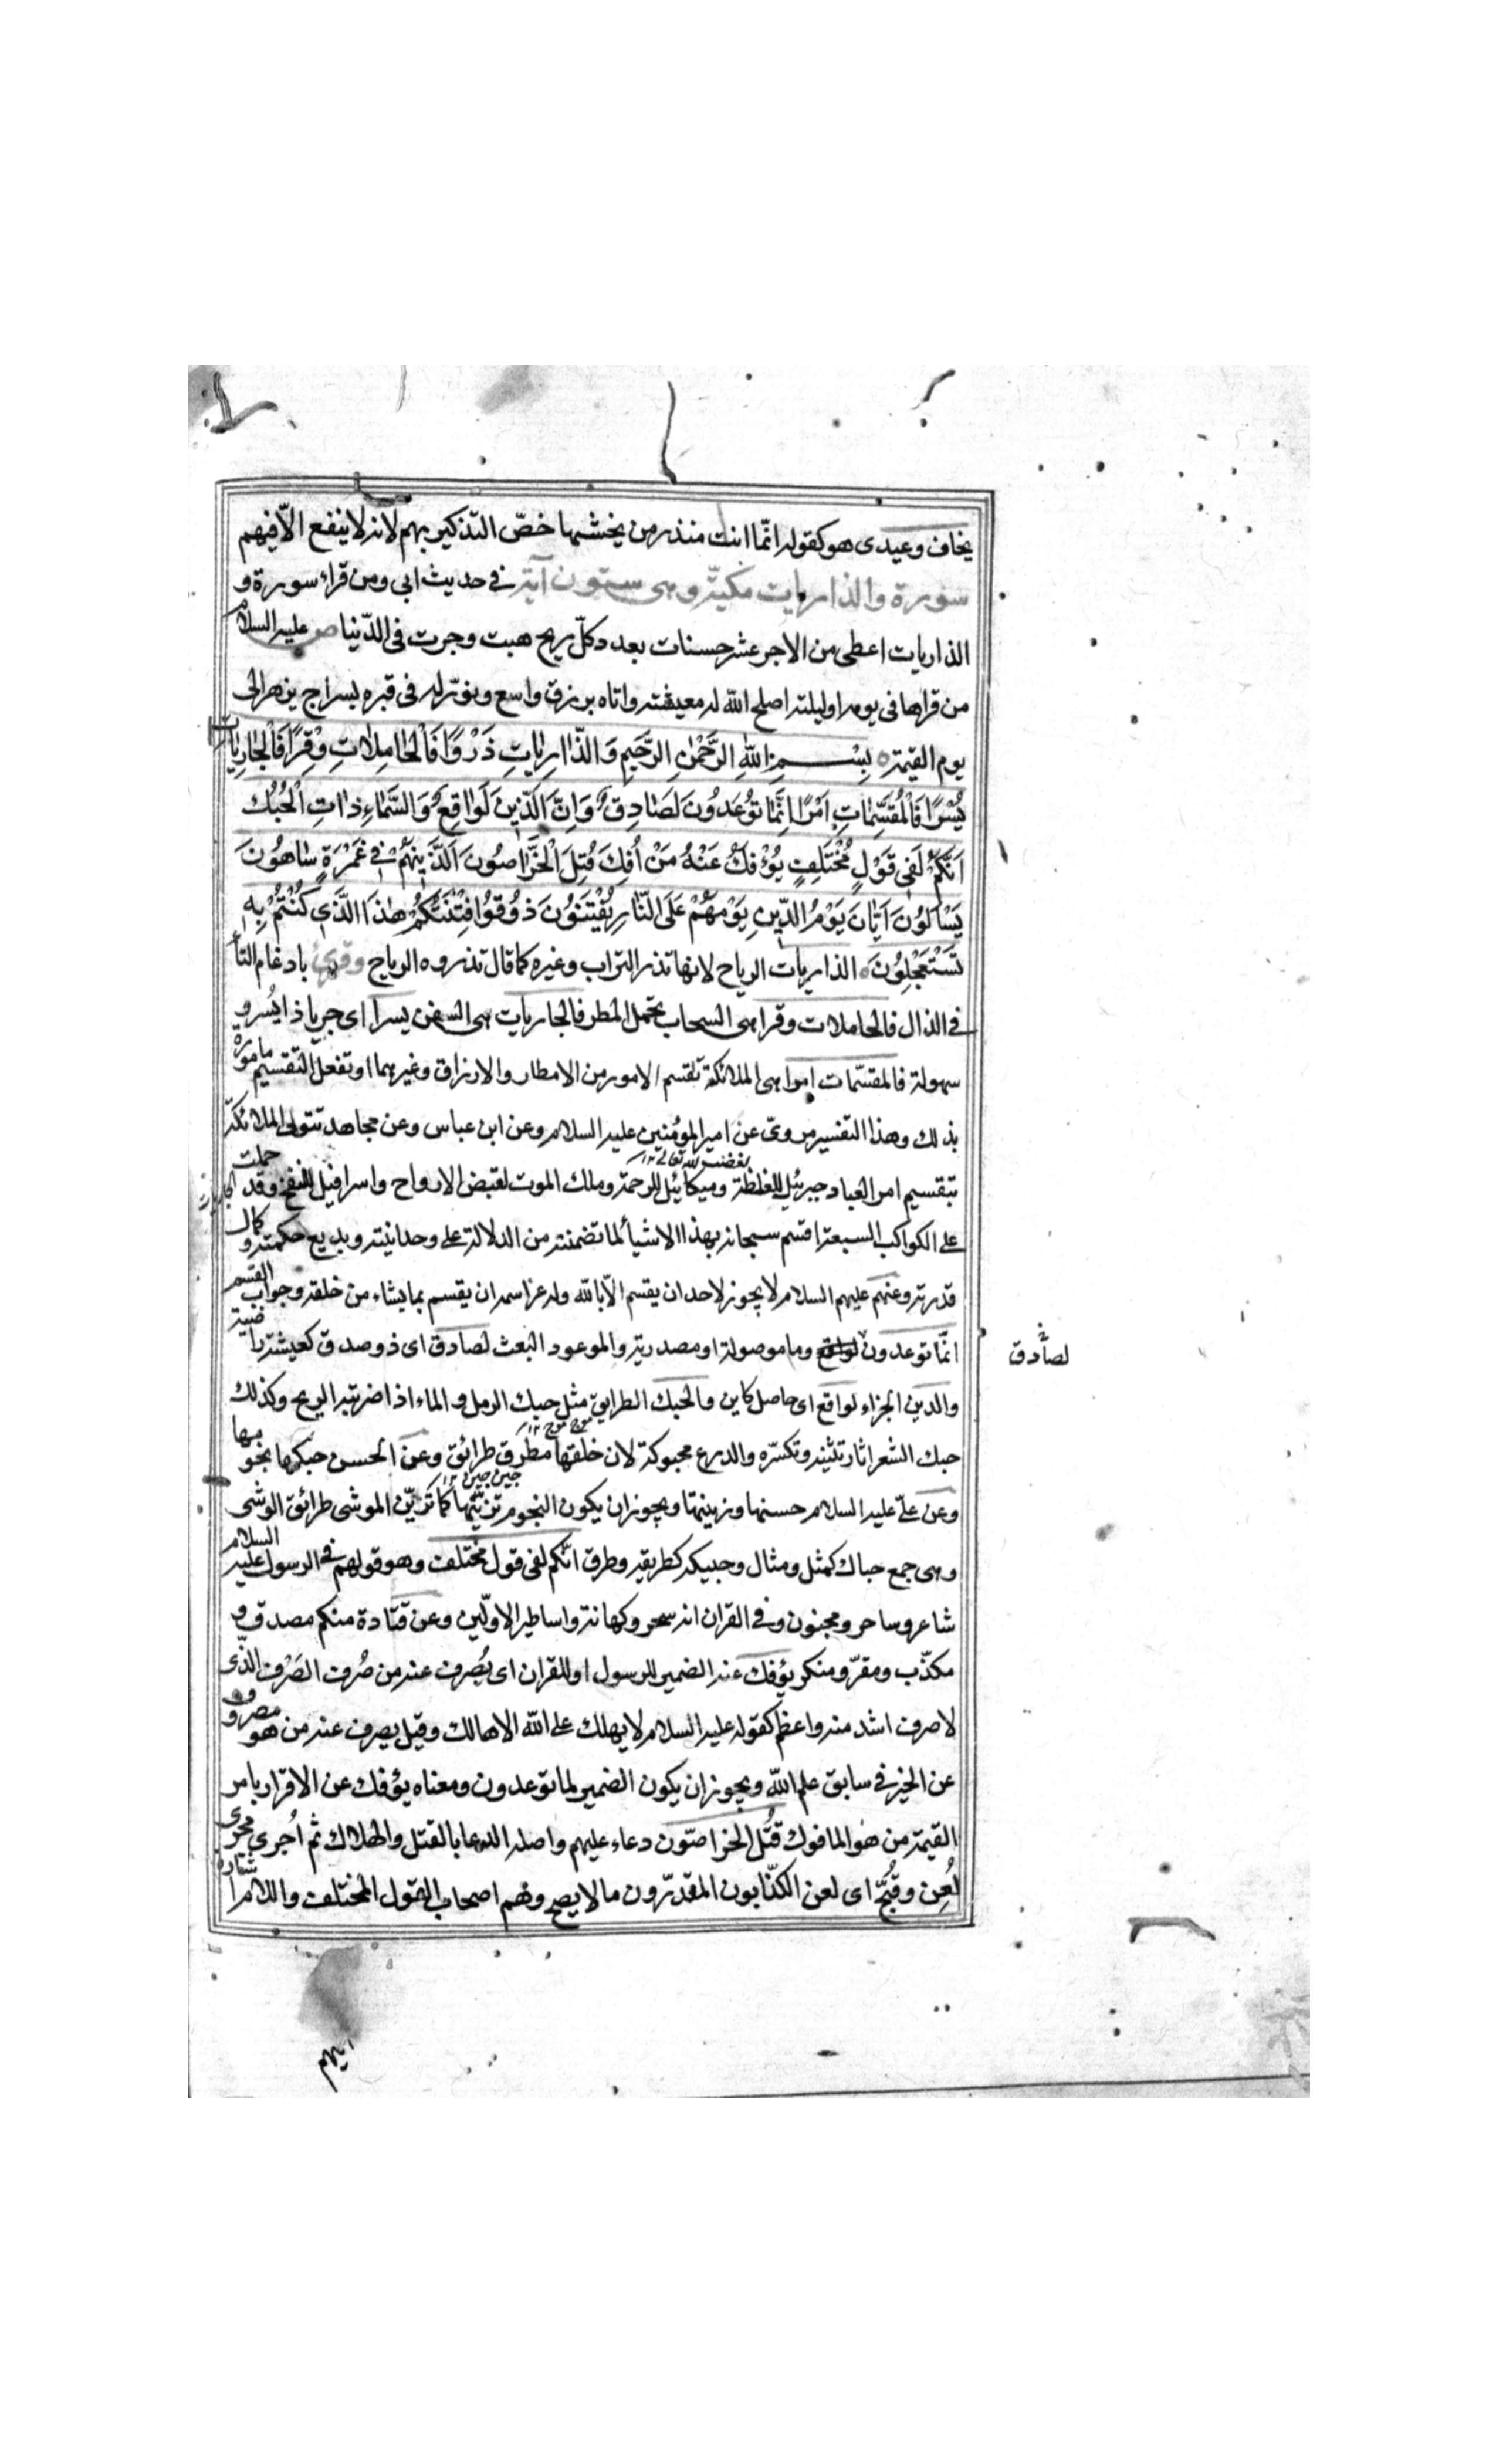 يخاف وعيدى هو كقوله انّما انت منذر من يخشيها خصّ التذكير بهم لانه لا ينفع الّا فيهم
سورة والذاريات مكيّة وهى ستون آية في حديث ابى ومن قراء سورة و
الذاريات اعطى من الاجر عشر حسنات بعدد كلّ ريح هبت وجرت فى الدّنيا ص عليه السلام
من قراها فى يومه او ليلته اصلح اللّه له معيشته واتاه برزق واسع ونوّر له فى قبره بسراج يزهر الى
يوم القيمة ه بِسْمِ اللّٰهِ الرَّحْمٰنِ الرَّحيمِ وَالذّٰارِيٰاتِ ذَرْوًا فَالْحٰامِلٰاتِ وِقْرًا فَالْجٰارِيٰاتِ
يُسْرًا فَالْمُقَسِّمٰاتِ اَمْرًا اِنَّمٰا تُوعَدُونَ لَصٰادِقٌ وَاِنَّ الدّينَ لَوٰاقِعٌ وَالسَّمٰاءِ ذٰاتِ الْحُبُكِ
اِنَّكُمْ لَفى قَوْلٍ مُخْتَلِفٍ يُؤْفَكُ عَنْهُ مَنْ اُفِكَ قُتِلَ الْخَرّٰاصُونَ اَلَّذينَ هُمْ فى غَمْرَةٍ سٰاهُونَ
يَسْاَلُونَ اَيّٰانَ يَوْمُ الدّينِ يَوْمَ هُمْ عَلَى النّٰارِ يُفْتَنُونَ ذُوقُوا فِتْنَتَكُمْ هٰذَا الَّذى كُنْتُمْ بِهِ
تَسْتَعْجِلُونَ ه الذاريات الرياح لانها تذر التراب وغيره كما قال تذروه الرياح وقرئ بادغام التاء
في الذال فالحاملات وقرا هى السحاب تحمل المطر فالجاريات هى السفن يسرا اى جريا ذا يُسر و
سهولة فالمقسّمات امرا هى الملائكة تقسم الامور من الامطار والارزاق وغيرهما او تفعل التقسيم مامورة
بذلك وهذا التفسير مروىّ عن امير المؤمنين عليه السلام وعن ابن عباس وعن مجاهد تتولى الملائكة
بتقسيم امر العباد جبرئيل للغلظة وميكائيل للرحمة وملك الموت لقبض الارواح واسرافيل للنفخ وقد حملت الجاريات
على الكواكب السبعة اقسم سبحانه بهذا الاشياء لما تضمنته من الدلالة على وحدانيته وبديع حكمته وكمال
قدرته وعنهم عليهم السلام لا يجوز لاحد ان يقسم الّا باللّه وله عز اسمه ان يقسم بما يشاء من خلقه وجواب القسم
انّما توعدون وما موصولة او مصدرية والموعود البعث لصادق اى ذو صدق كعيشة راضية
لصادق
والدين الجزاء لواقع اى حاصل كاين والحبك الطرايق مثل حبك الرمل والماء اذا ضربته الريح وكذلك
حبك الشعر اثار تثنيه وتكسّره والدرع محبوكة لان خلقها مطرق طرائق وعن الحسن حبكها نجومها
وعن علىّ عليه السلام حسنها وزينتها ويجوز ان يكون النجوم تزيّنها كما تزيّن الموشى طرائق الوشى
وهى جمع حباك كمثل ومثال وحبيكه كطريقه وطرق انّكم لفى قول مختلف وهو قولهم في الرسول عليه السلام
شاعر وساحر ومجنون وفي القران انه سحر وكهانة واساطير الاوّلين وعن قتادة منكم مصدق و
مكذّب ومقرّ ومنكر يؤفك عنه الضمير للرسول او للقران اى يُصرف عنه من صُرف الصَرْف الذّى
لا صرف اشد منه واعظم كقوله عليه السلام لا يهلك على اللّه الا هالك وقيل يصرف عنه من هو مصروف
عن الخير في سابق علم اللّه ويجوز ان يكون الضمير لما توعدون ومعناه يؤفك عن الاقرار بامر
القيمة من هو المافوك قُتل الخراصّون دعاء عليهم واصله الدعا بالقتل والهلاك ثم اُجرى مجرى
لُعِن وقُبّح اى لعن الكذّابون المقدّرون ما لا يصح وهم اصحاب القول المختلف واللام اشارة
اليهم